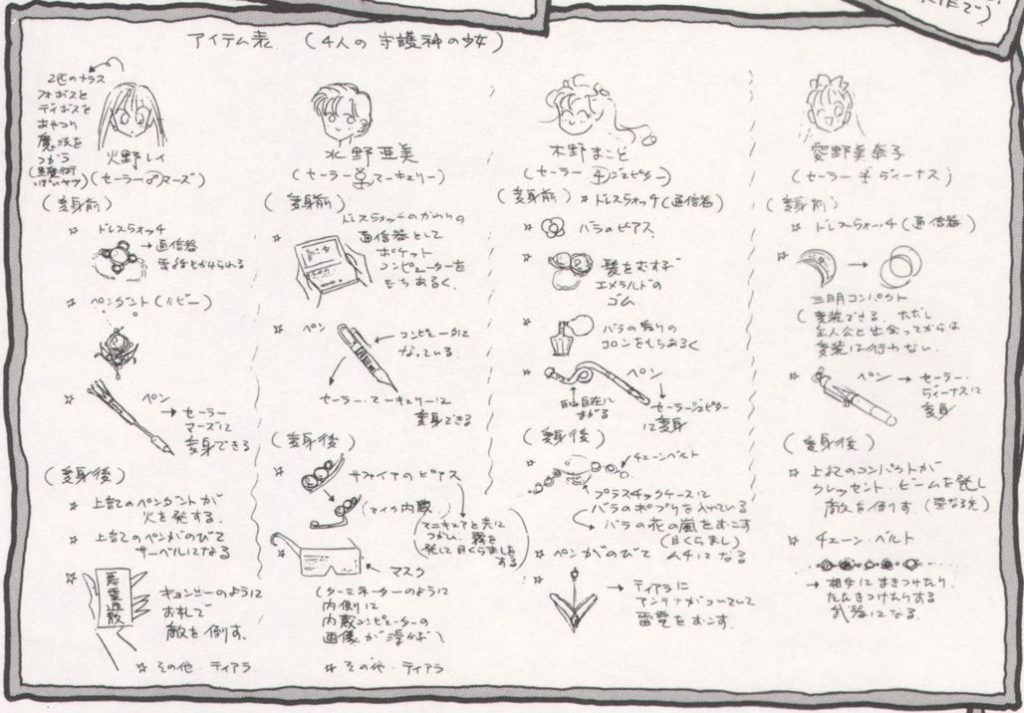 アイテム表 (4人の守護神の少女)
2匹のカラス
フォボスと
ディモスを
あやつり
魔法を
つかう
火野レイ
(セーラー♂マーズ)
(変身前)
☆ ドレスウォッチ
→通信器
☆ ペンダント(ルビー)
☆
ペン
→セーラー
マーズに
変身できる
(変身後)
☆ 上記のペンダントが
火を発する。
☆ 上記のペンがのびて
サーベルになる
☆
悪霊退散
キョンシーのように
お札で
敵を倒す。
☆ その他・ティアラ
水野亜美
(セーラー☿マーキュリー)
(変身前)
ドレスウォッチのかわりの
☆
通信器として
ポケット
コンピューターを
もちあるく。
☆ ペン
←コンピューターに
なっている
セーラー・マーキュリーに
変身できる
(変身後)
☆
サファイアのピアス
マイク内蔵
☆
←マスク
(ターミネーターのように
内側に
内蔵コンピューターの
画像が浮かぶ)
☆ その他・ティアラ
木野まこと
(セーラー♃ジュピター)
(変身前) ☆ドレスウォッチ(通信器)
☆ バラのピアス
☆ 髪をむすぶ
エメラルドの
ゴム
☆ バラの香りの
コロンをもちあるく
☆ ペン
自由自在に
まがる
セーラージュピター
に変身
(変身後)
☆ チェーンベルト
プラスチックケースに
バラのポプリを入れている
バラの花の嵐をおこす
(目くらまし)
☆ ペンがのびて ムチになる
☆
→ティアラに
アンテナがついていて
雷電をおこす。
愛野美奈子
(セーラー♀ヴィーナス)
(変身前)
☆ ドレスウォッチ(通信器)
☆
三日月コンパクト
(変装できる。ただし
主人公と出会ってからは
変装は行わない。
☆ ペン → セーラー・
ヴィーナスに
変身
(変身後)
☆ 上記のコンパクトが
クレッセント・ビームを発し
敵を倒す
☆ チェーン・ベルト
→相手にまきつけたり
たたきつけたりする
武器になる。